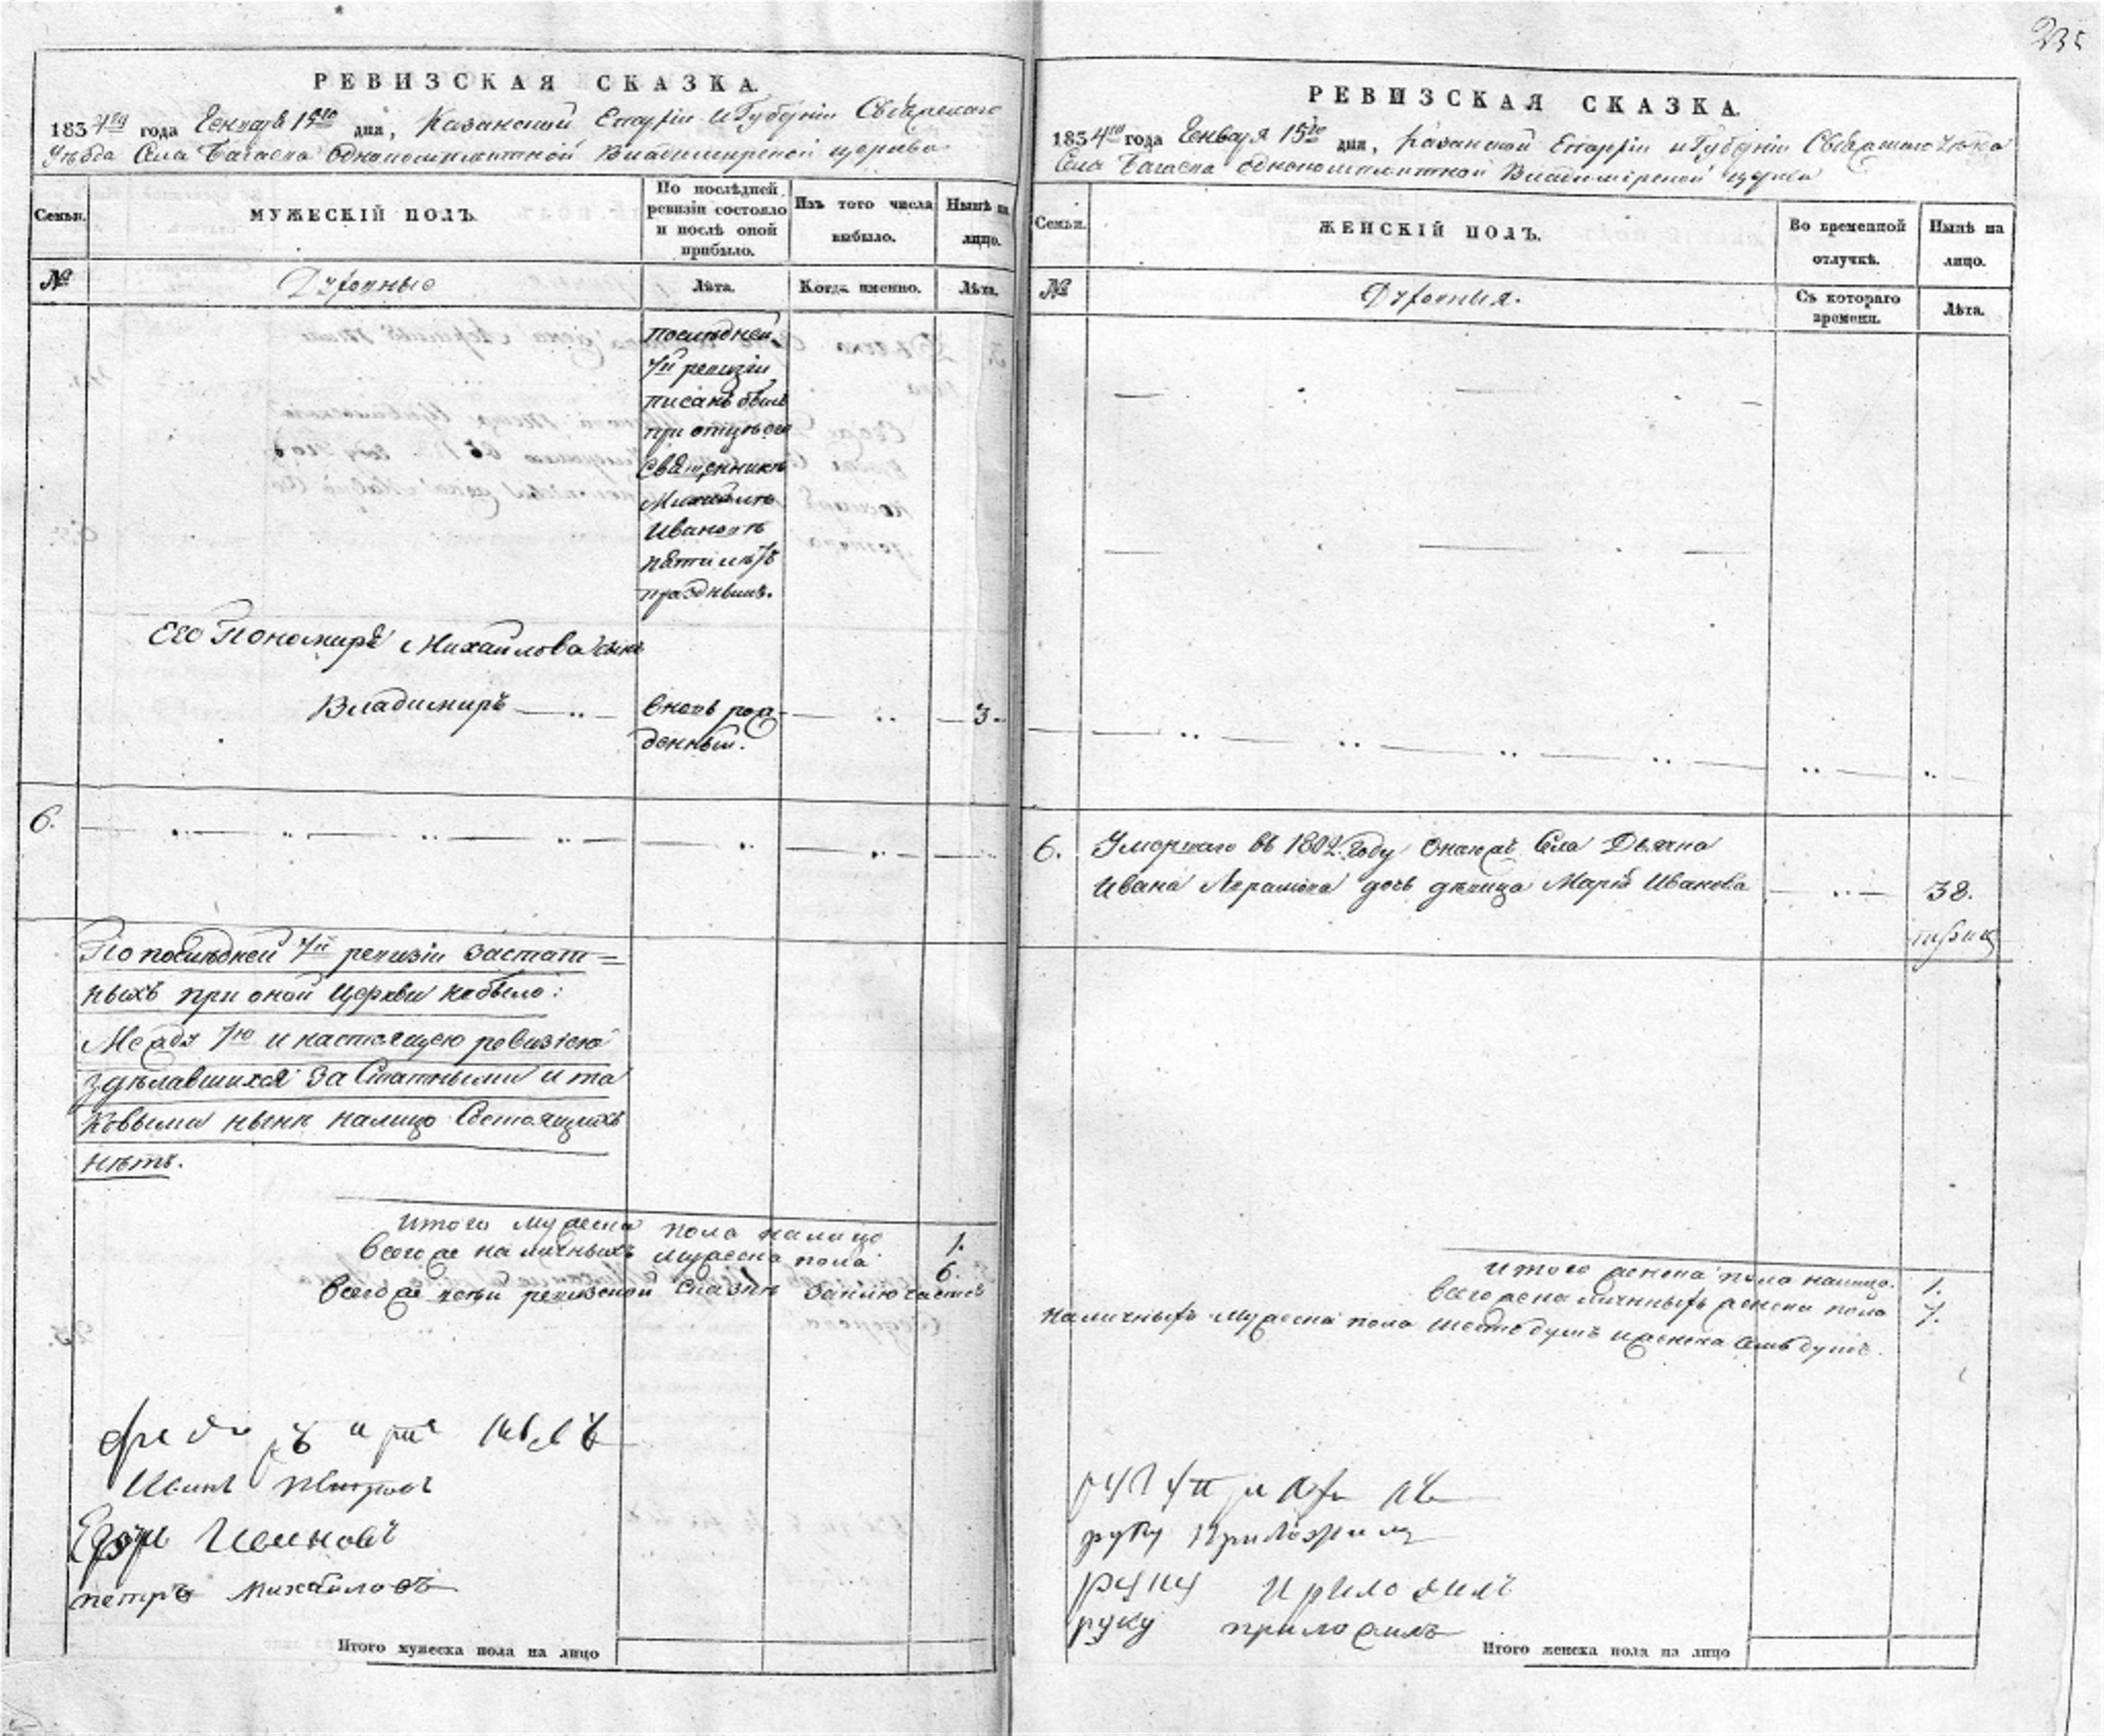 235
РЕВИЗСКАЯ СКАЗКА.
1834го года Генваря 15го дня, Казанской Епархіи и Губерніи Свіяжскаго
Уѣзда Села Багаева однокомплектной Владимирской церкви
Семьи.
МУЖЕСКІЙ ПОЛЪ.
По послѣдней ревизіи состояло и послѣ оной прибыло.
Изъ того числа выбыло.
Нынѣ на лицо.
№
Духовные
Лѣта.
Когда именно.
Лѣта.
Последней
7й ревизіи
писанъ былъ
при отцѣ его
Священникѣ
Михаилѣ
Ивановѣ
пяти лѣтъ
празднымъ.
Его Пономаря Михайлова сынъ
Владимиръ
вновь рож
денный.
3.
6.
По последней 7й ревизіи застат=
ныхъ при оной Церкви не было:
Между 7ю и настоящею ревизіею
здѣлавшихся за Статными и та
ковыми нынѣ на лицо Состоящихъ
нѣтъ.
Итого мужеска пола на лицо 1.
Всего же наличныхъ мужеска пола 6.
Всего же въ сей ревизской Сказкѣ заключается
Иванъ Петровъ
Ивановъ
петръ Михайловъ
Итого мужеска пола на лицо
РЕВИЗСКАЯ СКАЗКА.
1834го года Генваря 15го дня, Казанской Епархіи и Губерніи Свіяжскаго Уѣзда
Села Багаева однокомплектной Владимірской церкви
Семьи.
ЖЕНСКІЙ ПОЛЪ.
Во временной отлучкѣ.
Нынѣ на лицо.
№
Духовныя.
Съ котораго времени.
Лѣта.
6. Умершаго въ 1802 году Онагожъ Села Дьячка
Ивана Авраамова дочь дѣвица Марія Иванова 38.
Итого женска пола на лицо. 1.
Всего же наличныхъ женска пола 7.
Наличныхъ мужеска пола шесть душъ и женска семь душъ.
руку приложилъ
руку приложилъ
руку приложилъ
Итого женска пола на лицо